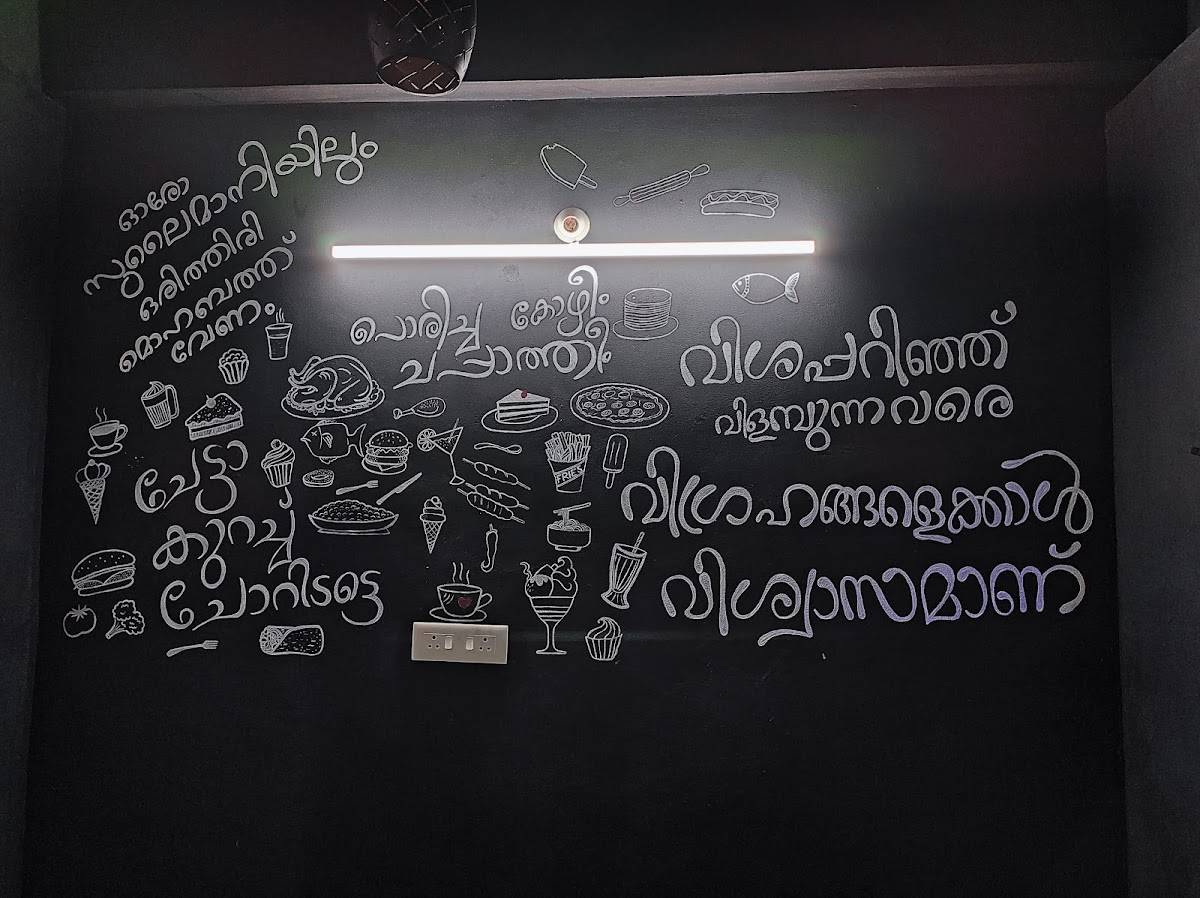 ഓരോ
സുലൈമാനിയിലും
ഒരിത്തിരി
മൊഹബത്ത്
വേണം
പൊരിച്ച കോഴീം
ചപ്പാത്തീം
വിശപ്പറിഞ്ഞ്
വിളമ്പുന്നവരെ
വിഗ്രഹങ്ങളെക്കാൾ
വിശ്വാസമാണ്
ചേട്ടാ
കുറച്ച്
ചോറിടട്ടെ
FRIES